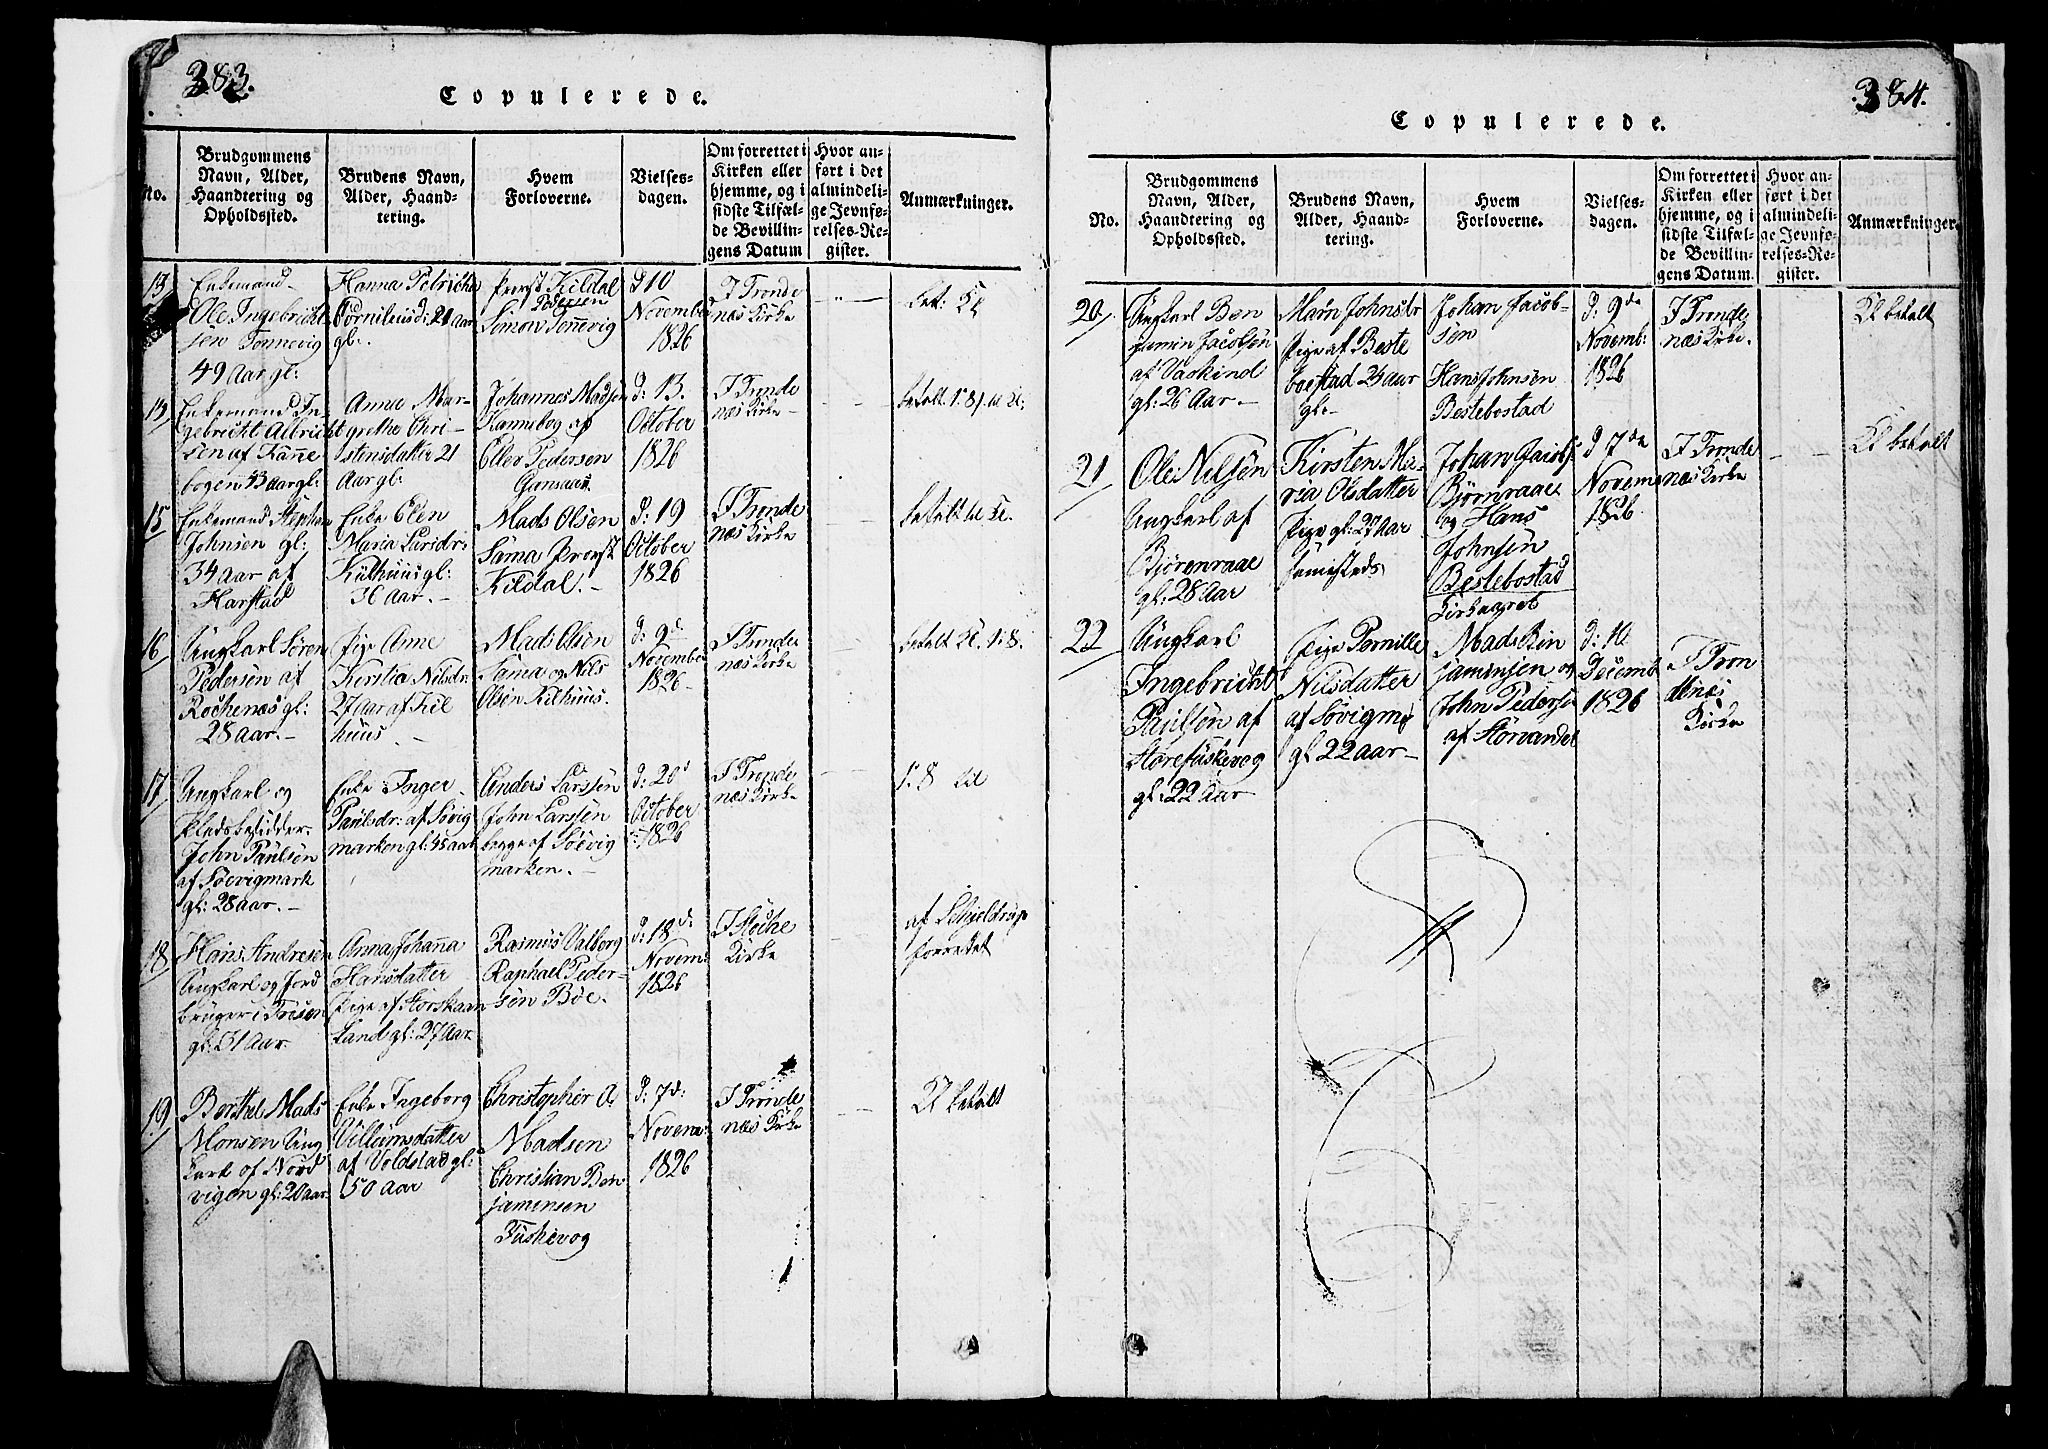 383.
Copulerede.
No.
Brudgommens
Navn, Alder,
Haandtering og
Opholdssted.
Brudens Navn,
Alder, Haand-
tering.
Hvem
Forloverne.
Vielses-
dagen.
Om forrettet i
Kirken eller
hjemme, og i
sidste Tilfæl-
de Bevillin-
gens Datum
Hvor an-
ført i det
almindeli-
ge Jevnfø-
relses-Re-
gister.
Anmærkninger.
13
Enkemand
Ole Ingebrigt-
sen Tønnevig
49 Aar gl:
Hanna Petricha
Corniliusd: 21 Aar
gl:.
Provst Kildal
Pedersen
Simon Tønnevig
d 10
November
1826
I Tronde
næs Kirke
Enkemand In-
gebricht Albricht
sen af Kanne
bogen 43 aar gl:
Anna Mar-
grethe Chri-
stensdatter 21
Aar gl:
Johannes Madsen
Kannebog af
Eller Pedersen
Gansaas.
d: 13.
October
1826
I Tronde
næs Kirke
15
Enkemand Stephan
Johnsen gl:
34 Aar af
Harstad
Enke Elen
Maria Larsdr:
Kilhuus gl:
36 Aar.
Mads Olsen
Sama Provst
Kildal.
d: 19
October
1826
I Tronde
næs Kirke
16
Ungkarl Sören
Pedersen af
Rochenæs gl:
28 aar.
Pige Anne
Kerstia Nilsdr:
27 aar af Kil
huus.
Mads Olsen
Sama og Nils
Olsen Kilhuus.
d: 9d
November
1826
I Tronde
næs Kirke
17
Ungkarl og
Pladsbesidder
John Paulsen
af Søevigmark
gl: 28 aar.
Enke Inger
Paulsdr: af Søvig
marken gl: 45 aar
Anders Larssen
John Larssen
begge af Søevig
marken.
d: 20d
October
1826
I Tronde
næs Kirke
1: 8
18
Hans Andresen
Ungkarl og Jord
bruger i Trøsen
gl: 31 Aar.
Anna Johanna
Hansdatter
Pige af Storskaan
Land gl: 27 Aar
Rasmus Valborg
Raphael Peder-
sön Böe.
d: 18d:
Novem:
1826
I
Kirke
af Schjeldrup
forrettet
19
Berthel Mads
Monsen Ung
karl af Nord
vigen gl: 20 aar.
Enke Ingeborg
Villumsdatter
af Voldstad gl:
50 aar
Christopher A:
Madsen
Christian Ben
jaminsen
Fuskevog
d: 7d:
Novem:
1826
I Tronde
næs Kirke
betalt
384.
Copulerede.
No.
Brudgommens
Navn, Alder,
Haandtering og
Opholdssted.
Brudens Navn,
Alder, Haand-
tering.
Hvem
Forloverne.
Vielses-
dagen.
Om forrettet i
Kirken eller
hjemme, og i
sidste Tilfæl-
de Bevillin-
gens Datum.
Hvor an-
ført i det
almindeli-
ge Jevnfø-
relses-Re-
gister.
Anmærkninger.
20
Ungkarl Ben
jamin Jacobsen
af Vaskind
gl: 26 Aar.
Marn Johnsdr
Pige af Beste
boestad 24 aar
gl:
Johan Jacob-
sen
Hans Johnsen
Bestebostad
d: 9de
Novemb:
1826
I Tronde
næs Kirke.
betalt
21
Ole Nilsen
Ungkarl af
Bjørenraae
gl: 28 Aar
Kirsten Ma-
ria Olsdatter
Pige gl: 27 Aar
samesteds
Johan Jacobs
Bjørnraae
og Hans
Johnsen
Bestebostad
d 7de
Novem
1826
I Tronde
næs Kirke
betalt
22
Ungkarl
Ingebricht
Paulsen af
Storefuskevog
gl: 22 Aar
Pige Pernille
Nilsdatter
af Søvigm
gl 22 aar
Mads Ben
jaminsen og
John Pedersen
af
d: 16
Decemb
1826
I Tron
dnæs
Kirke